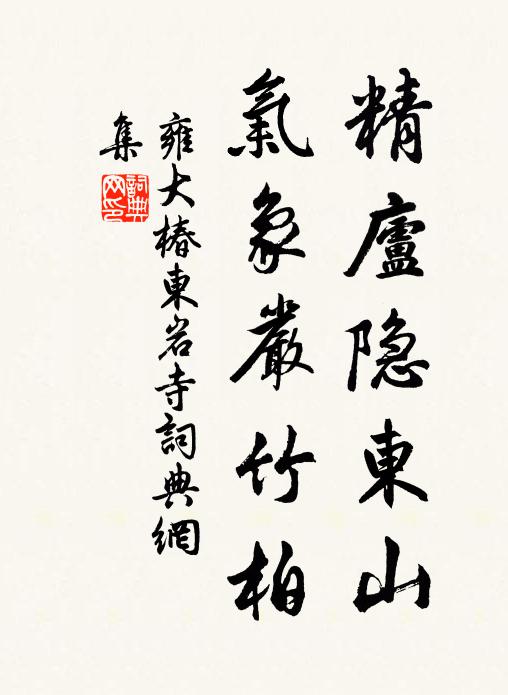 精廬隐東山
氣象嚴竹柏
雍大椿東岩寺詞典網
集
詞典网印